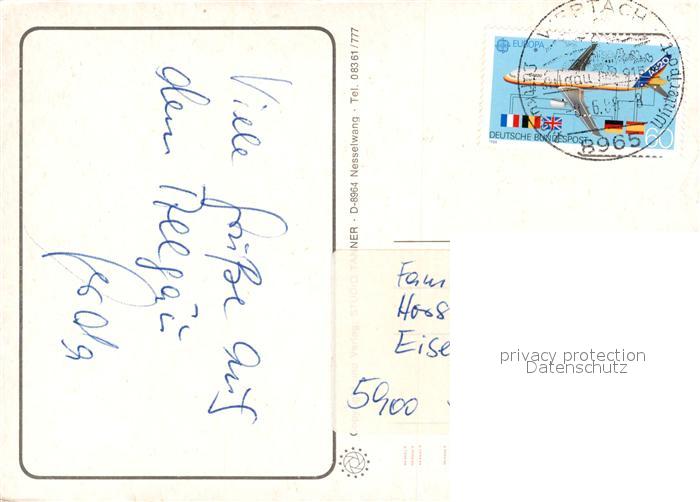 Viele Grüße auf
dem Allgäu
D-8964 Nesselwang · Tel. 08361/777
Verlag: STUDIO TANNER
EUROPA
A320
DEUTSCHE BUNDESPOST
60
WERTACH
8965
Fam
Eise
5900
privacy protection
Datenschutz